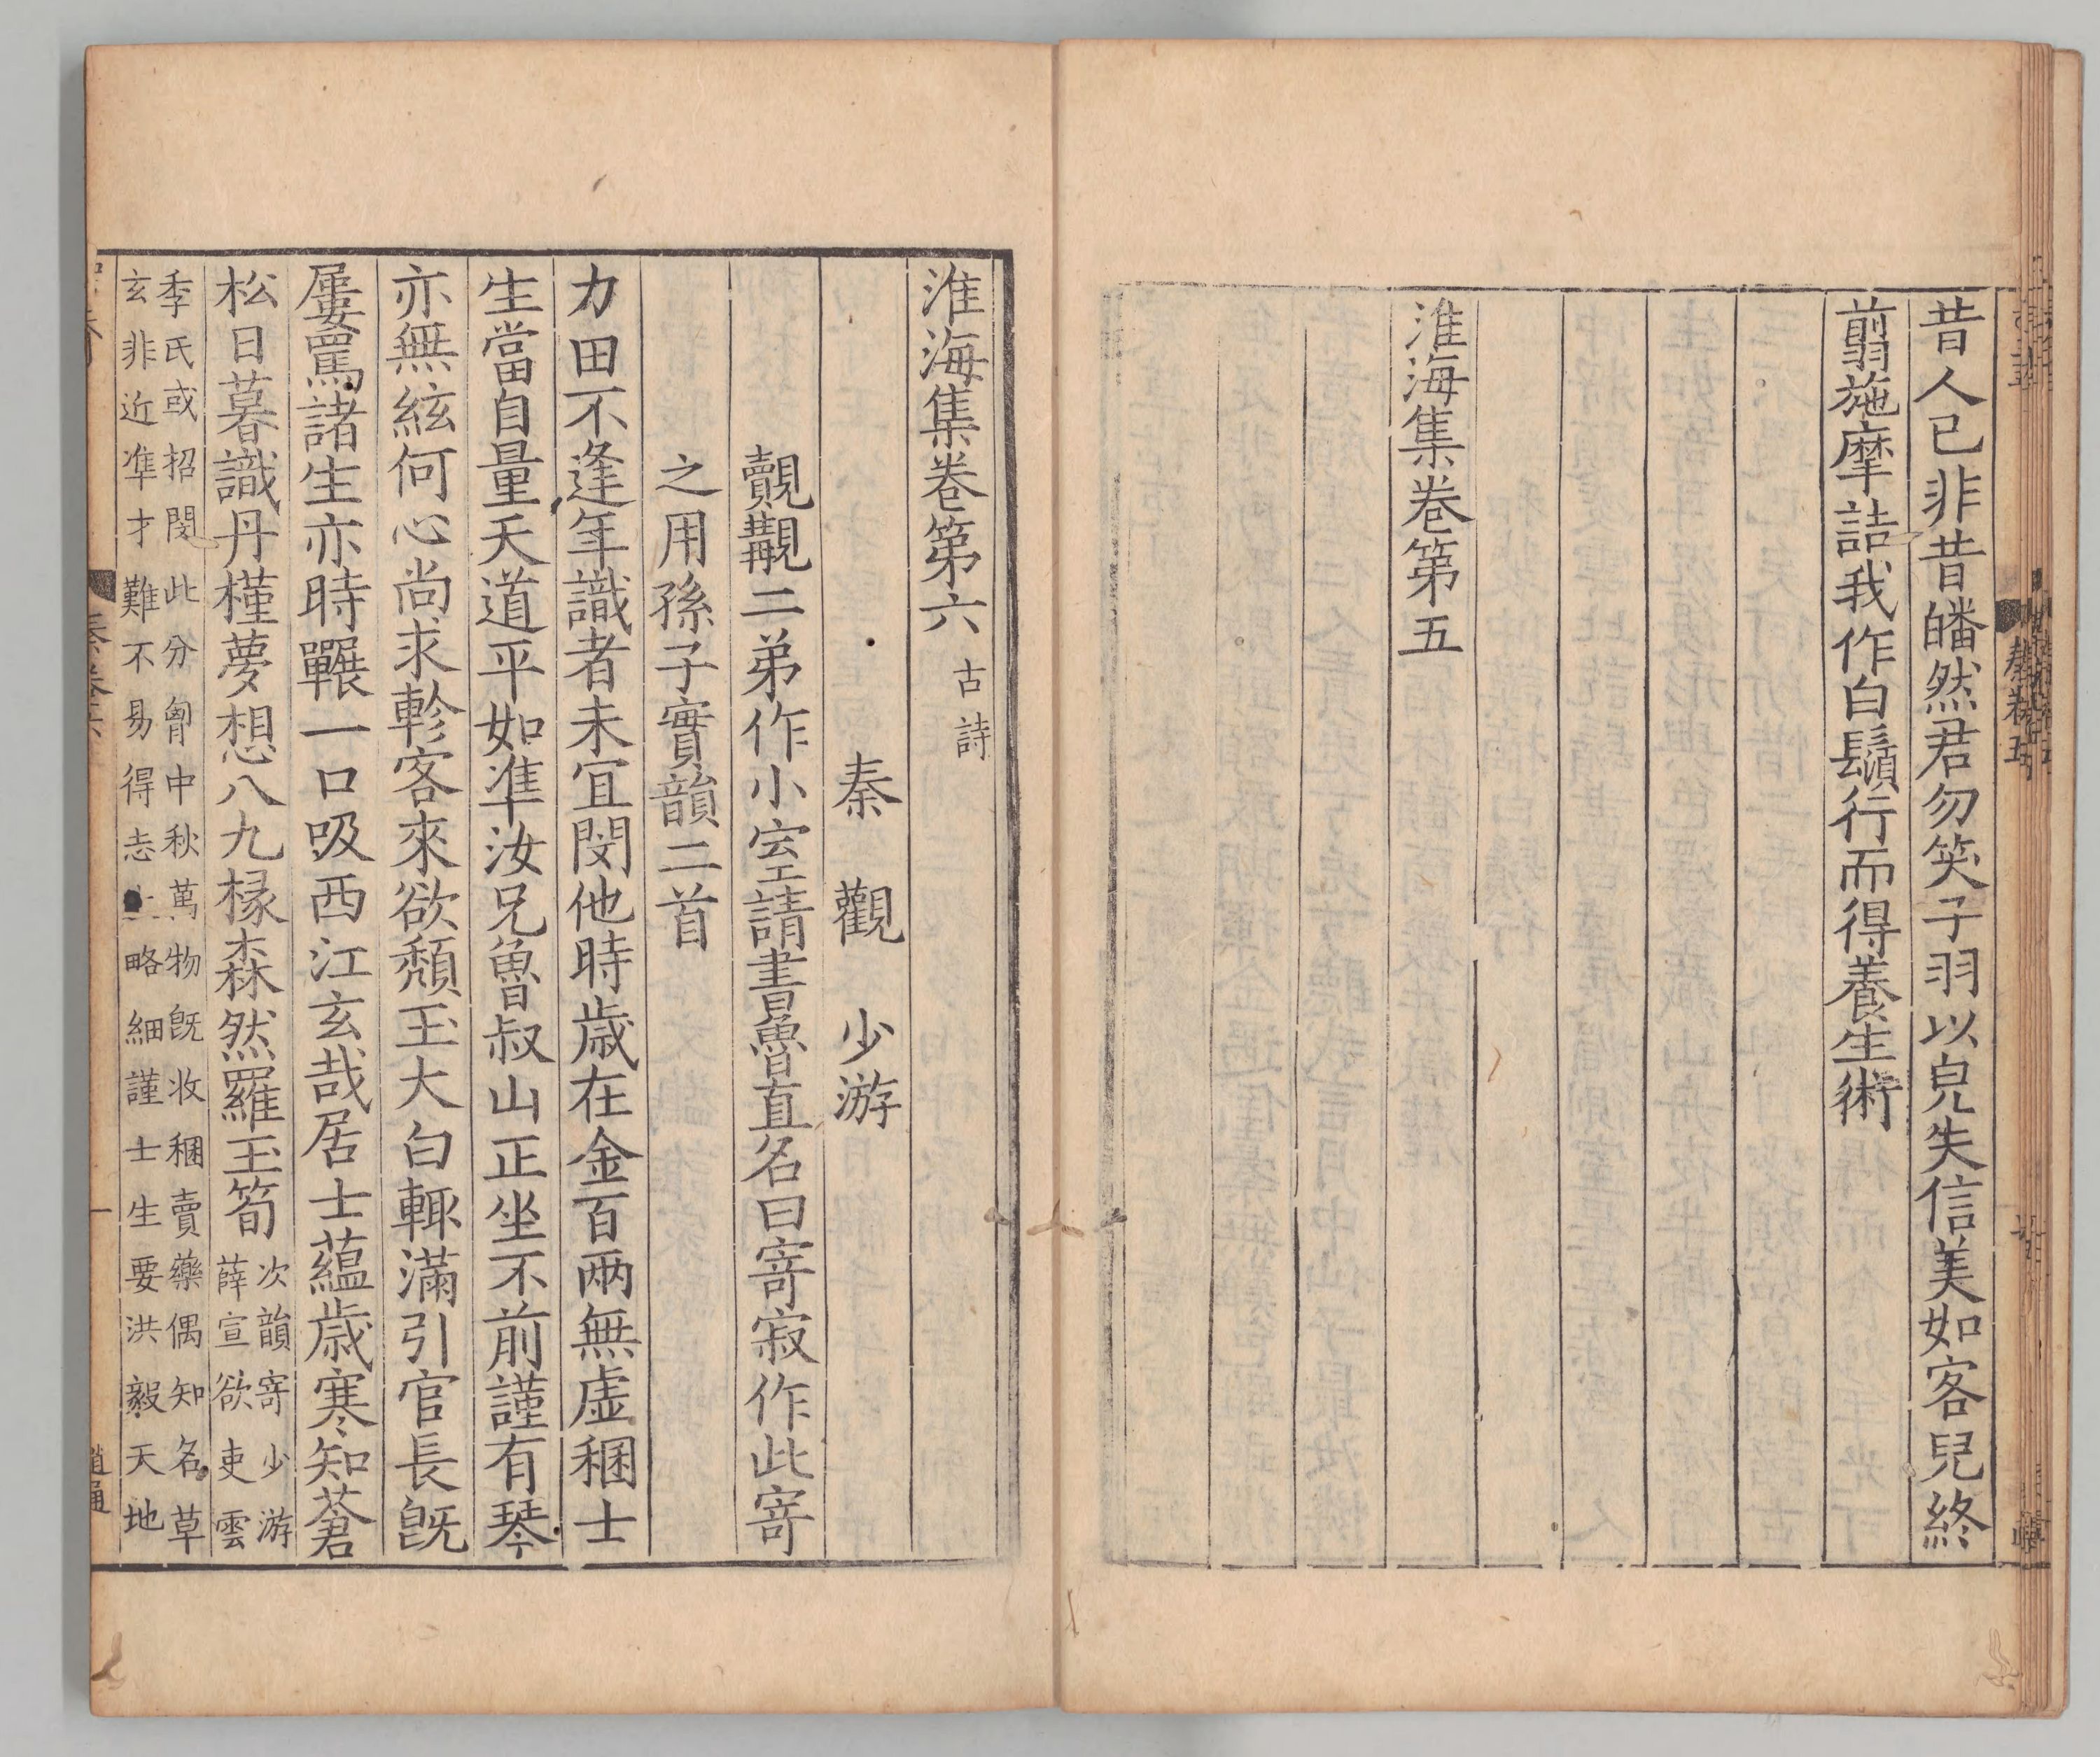 昔人已非昔皤然君勿笑子羽以皃失信美如客兒終
翦施摩詰我作白鬚行而得養生術
淮海集卷第五
淮海集卷第六 古詩
秦觀 少游
覿覯二弟作小室請書魯直名曰寄寂作此寄
之用孫子實韻二首
力田不逢年識者未宜閔他時歲在金百兩無虛稛士
生當自量天道平如準汝兄魯叔山正坐不前謹有琴
亦無絃何心尚求軫客來欲頹玉大白輙滿引官長旣
屢罵諸生亦時冁一口吸西江玄哉居士蘊歲寒知蒼
松日暮識丹槿夢想八九椽森然羅玉筍 次韻寄少游
薛宣欲吏雲
季氏或招閔此分匈中秋萬物旣收稛賣藥偶知名草
玄非近凖才難不易得志士略細謹士生要洪毅天地
秦卷五